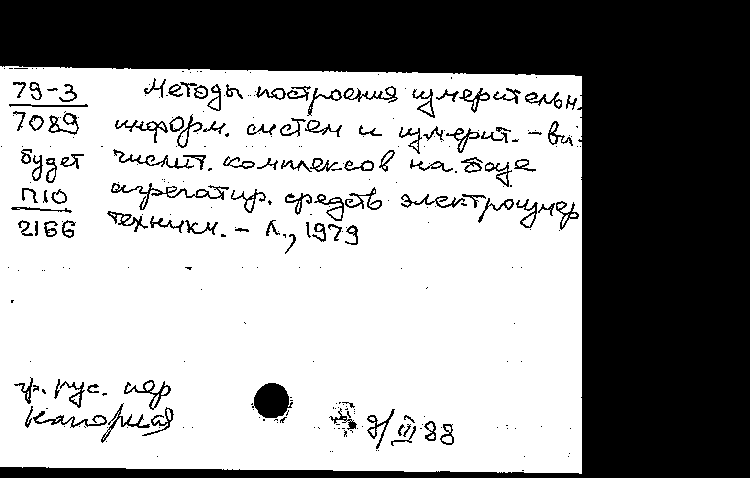 79-3 Методы построения измерительн.
7089 информ. систем и измерит. - вы-
будет числит. комплексов на базе
П10 агрегатир. средств электроизмер
2166 техники. - Л., 1979
гр. рус. пер
9/III 88